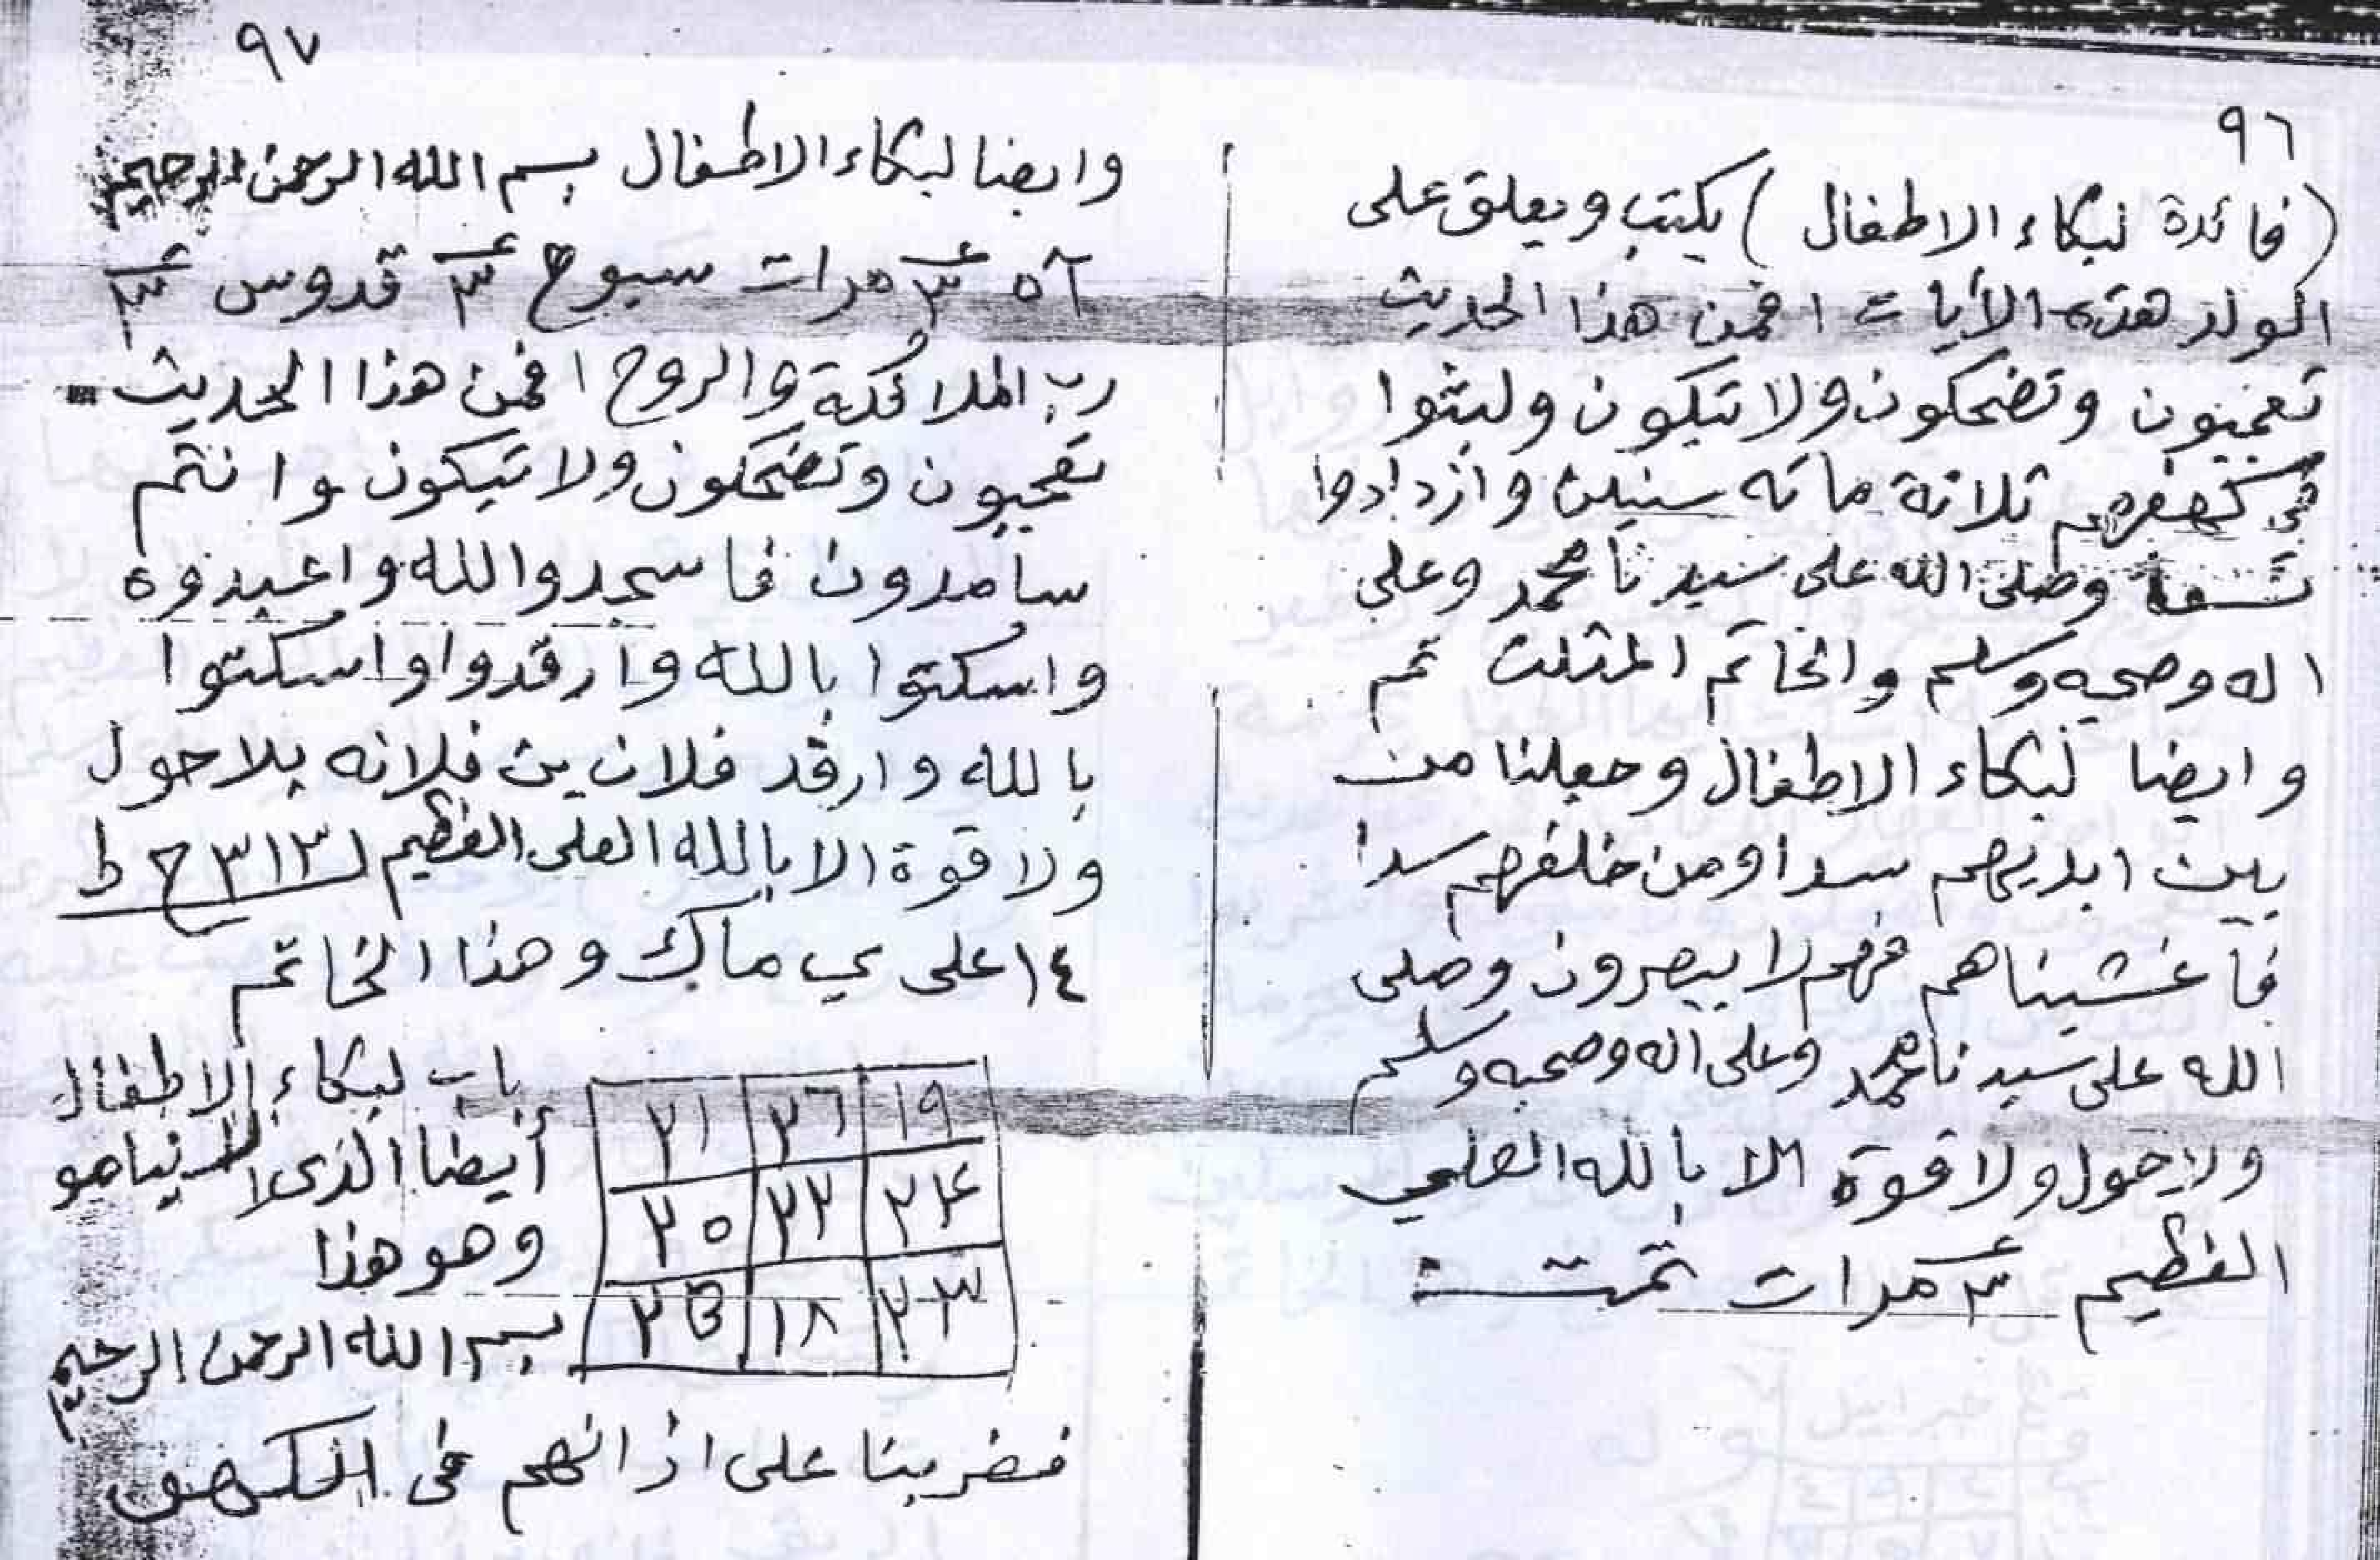 ٩٦
(فائدة لبكاء الاطفال) يكتب ويعلق على
الولد هذه الأيات افمن هذا الحديث
تعجبون وتضحكون ولا تبكون ولبثوا
في كهفهم ثلاثة مائه سنين وازدادوا
تسعا وصلى الله على سيدنا محمد وعلى
اله وصحبه وسلم والخاتم المثلث تم
وايضا لبكاء الاطفال وجعلنا من
بين ايديهم سدا ومن خلفهم سدا
فأغشيناهم فهم لا يبصرون وصلى
الله على سيدنا محمد وعلى اله وصحبه وسلم
ولا حول ولا قوة الا بالله العلي
العظيم ٣ مرات تمت
٩٧
وايضا لبكاء الاطفال بسم الله الرحمن الرحيم
آه ٣ مرات سبوح ٣ قدوس ٣
رب الملائكة والروح افمن هذا الحديث
تعجبون وتضحكون ولا تبكون وانتم
سامدون فاسجدوا لله واعبدوه
واسكتوا بالله وارقدوا واسكتوا
بالله وارقد فلان بن فلانه بلا حول
ولا قوة الا بالله العلى العظيم ٣١٣ ح ط
١٤ على ي ماك وهذا الخاتم
١٩ ٢٦ ٢١
٢٤ ٢٢ ٢٠
٢٣ ١٨
باب لبكاء الاطفال
أيضا الذى
وهو هذا
بسم الله الرحمن الرحيم
فضربنا على اذانهم فى الكهف